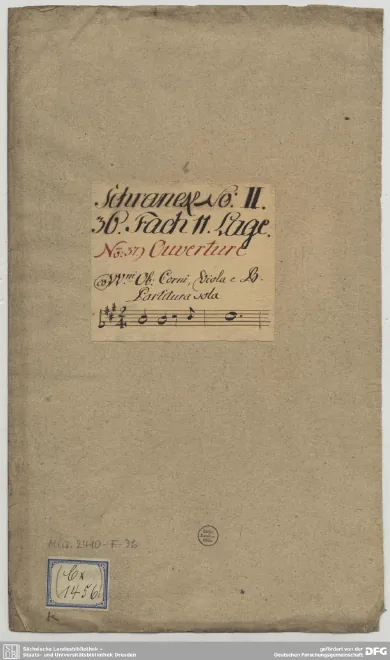 Schranck No: II.
36. Fach 11. Lage.
No: 37) Ouverture
VVni Ob. Corni, Viola e B.
Partitura sola
Mus. 2410-F-36
Cx
1456
K
SLUB
Sächsische Landesbibliothek –
Staats- und Universitätsbibliothek Dresden
gefördert von der
Deutschen Forschungsgemeinschaft
DFG